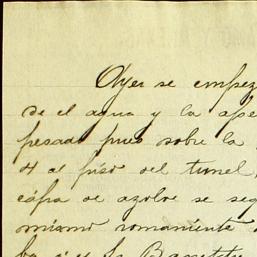 Ayer se empez
de el agua y la ape
pesada pues sobre la
4 al piso del tunel,
cápa de azolve se seg
mismo romamente